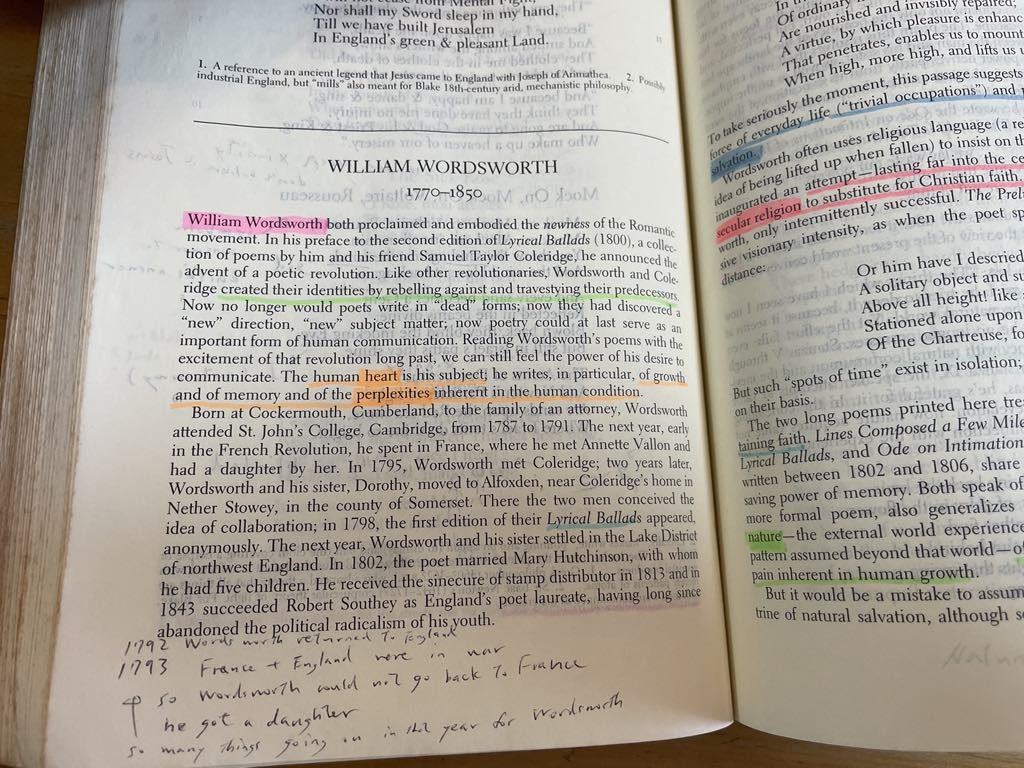 Nor shall my Sword sleep in my hand,
Till we have built Jerusalem
In England's green & pleasant Land.
1. A reference to an ancient legend that Jesus came to England with Joseph of Arimathea. 2. Possibly
industrial England, but "mills" also meant for Blake 18th-century arid, mechanistic philosophy.
WILLIAM WORDSWORTH
1770–1850
William Wordsworth both proclaimed and embodied the newness of the Romantic
movement. In his preface to the second edition of Lyrical Ballads (1800), a collec-
tion of poems by him and his friend Samuel Taylor Coleridge, he announced the
advent of a poetic revolution. Like other revolutionaries, Wordsworth and Cole-
ridge created their identities by rebelling against and travestying their predecessors.
Now no longer would poets write in "dead" forms; now they had discovered a
"new" direction, "new" subject matter; now poetry could at last serve as an
important form of human communication. Reading Wordsworth's poems with the
excitement of that revolution long past, we can still feel the power of his desire to
communicate. The human heart is his subject; he writes, in particular, of growth
and of memory and of the perplexities inherent in the human condition.
Born at Cockermouth, Cumberland, to the family of an attorney, Wordsworth
attended St. John's College, Cambridge, from 1787 to 1791. The next year, early
in the French Revolution, he spent in France, where he met Annette Vallon and
had a daughter by her. In 1795, Wordsworth met Coleridge; two years later,
Wordsworth and his sister, Dorothy, moved to Alfoxden, near Coleridge's home in
Nether Stowey, in the county of Somerset. There the two men conceived the
idea of collaboration; in 1798, the first edition of their Lyrical Ballads appeared,
anonymously. The next year, Wordsworth and his sister settled in the Lake District
of northwest England. In 1802, the poet married Mary Hutchinson, with whom
he had five children. He received the sinecure of stamp distributor in 1813 and in
1843 succeeded Robert Southey as England's poet laureate, having long since
abandoned the political radicalism of his youth.
1792 Wordsworth returned to England
1793 France + England were in war
so Wordsworth could not go back to France
he got a daughter
so many things going on in that year for Wordsworth
In th
Of ordinary
Are nourished and invisibly repaired;
A virtue, by which pleasure is enhanc
That penetrates, enables us to mount
When high, more high, and lifts us u
To take seriously the moment, this passage suggests
force of everyday life ("trivial occupations") and
salvation.
Wordsworth often uses religious language (a re
idea of being lifted up when fallen) to insist on th
inaugurated an attempt—lasting far into the ce
secular religion to substitute for Christian faith.
worth, only intermittently successful. The Prel
sive visionary intensity, as when the poet sp
distance:
Or him have I descried
A solitary object and su
Above all height! like
Stationed alone upon
Of the Chartreuse, fo
But such "spots of time" exist in isolation;
on their basis.
The two long poems printed here trea
taining faith. Lines Composed a Few Mile
Lyrical Ballads, and Ode on Intimation
written between 1802 and 1806, share
saving power of memory. Both speak of
more formal poem, also generalizes
nature—the external world experience
pattern assumed beyond that world—o
pain inherent in human growth.
But it would be a mistake to assum
trine of natural salvation, although s